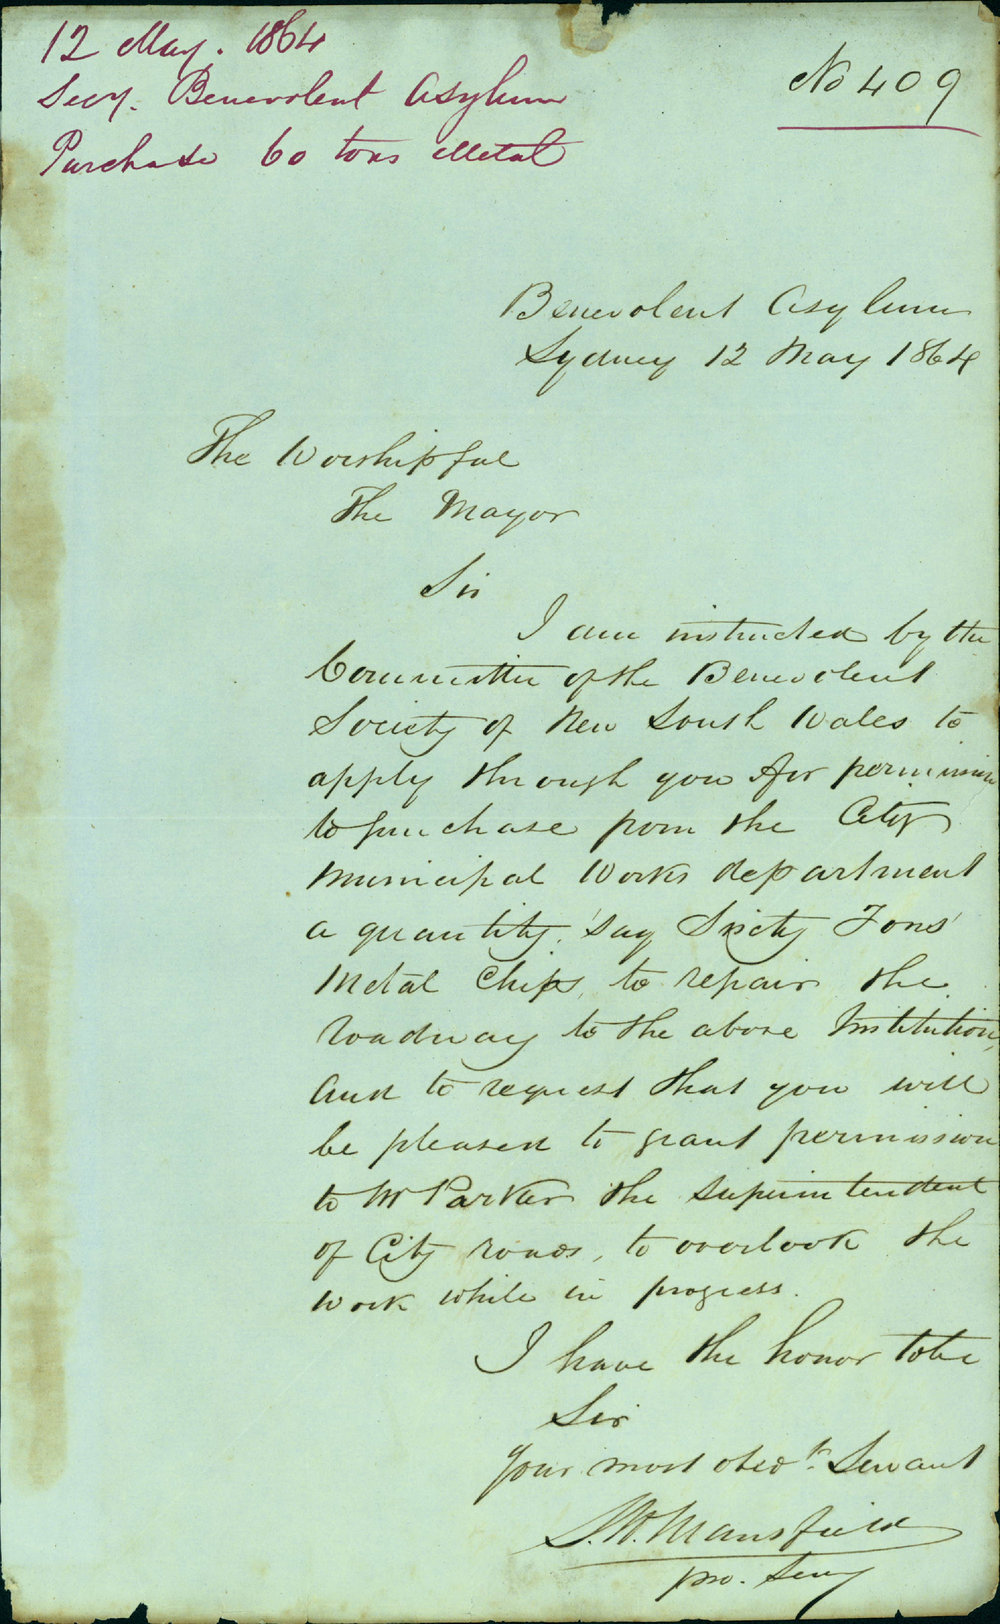 12 May. 1864
Secy. Benevolent Asylum
Purchase 60 tons Metal
No 409
Benevolent Asylum
Sydney 12 May 1864
The Worshipful
The Mayor
Sir
I am instructed by the
Committee of the Benevolent
Society of New South Wales to
apply through you for permission
to purchase from the City
Municipal Works department
a quantity, 'say Sixty Tons'
Metal Chips, to repair the
roadway to the above Institution,
and to request that you will
be pleased to grant permission
to Mr Parker the superintendent
of City roads, to overlook the
work while in progress.
I have the honor to be
Sir
Your most obedt. Servant
Mansfield
pro. Secy